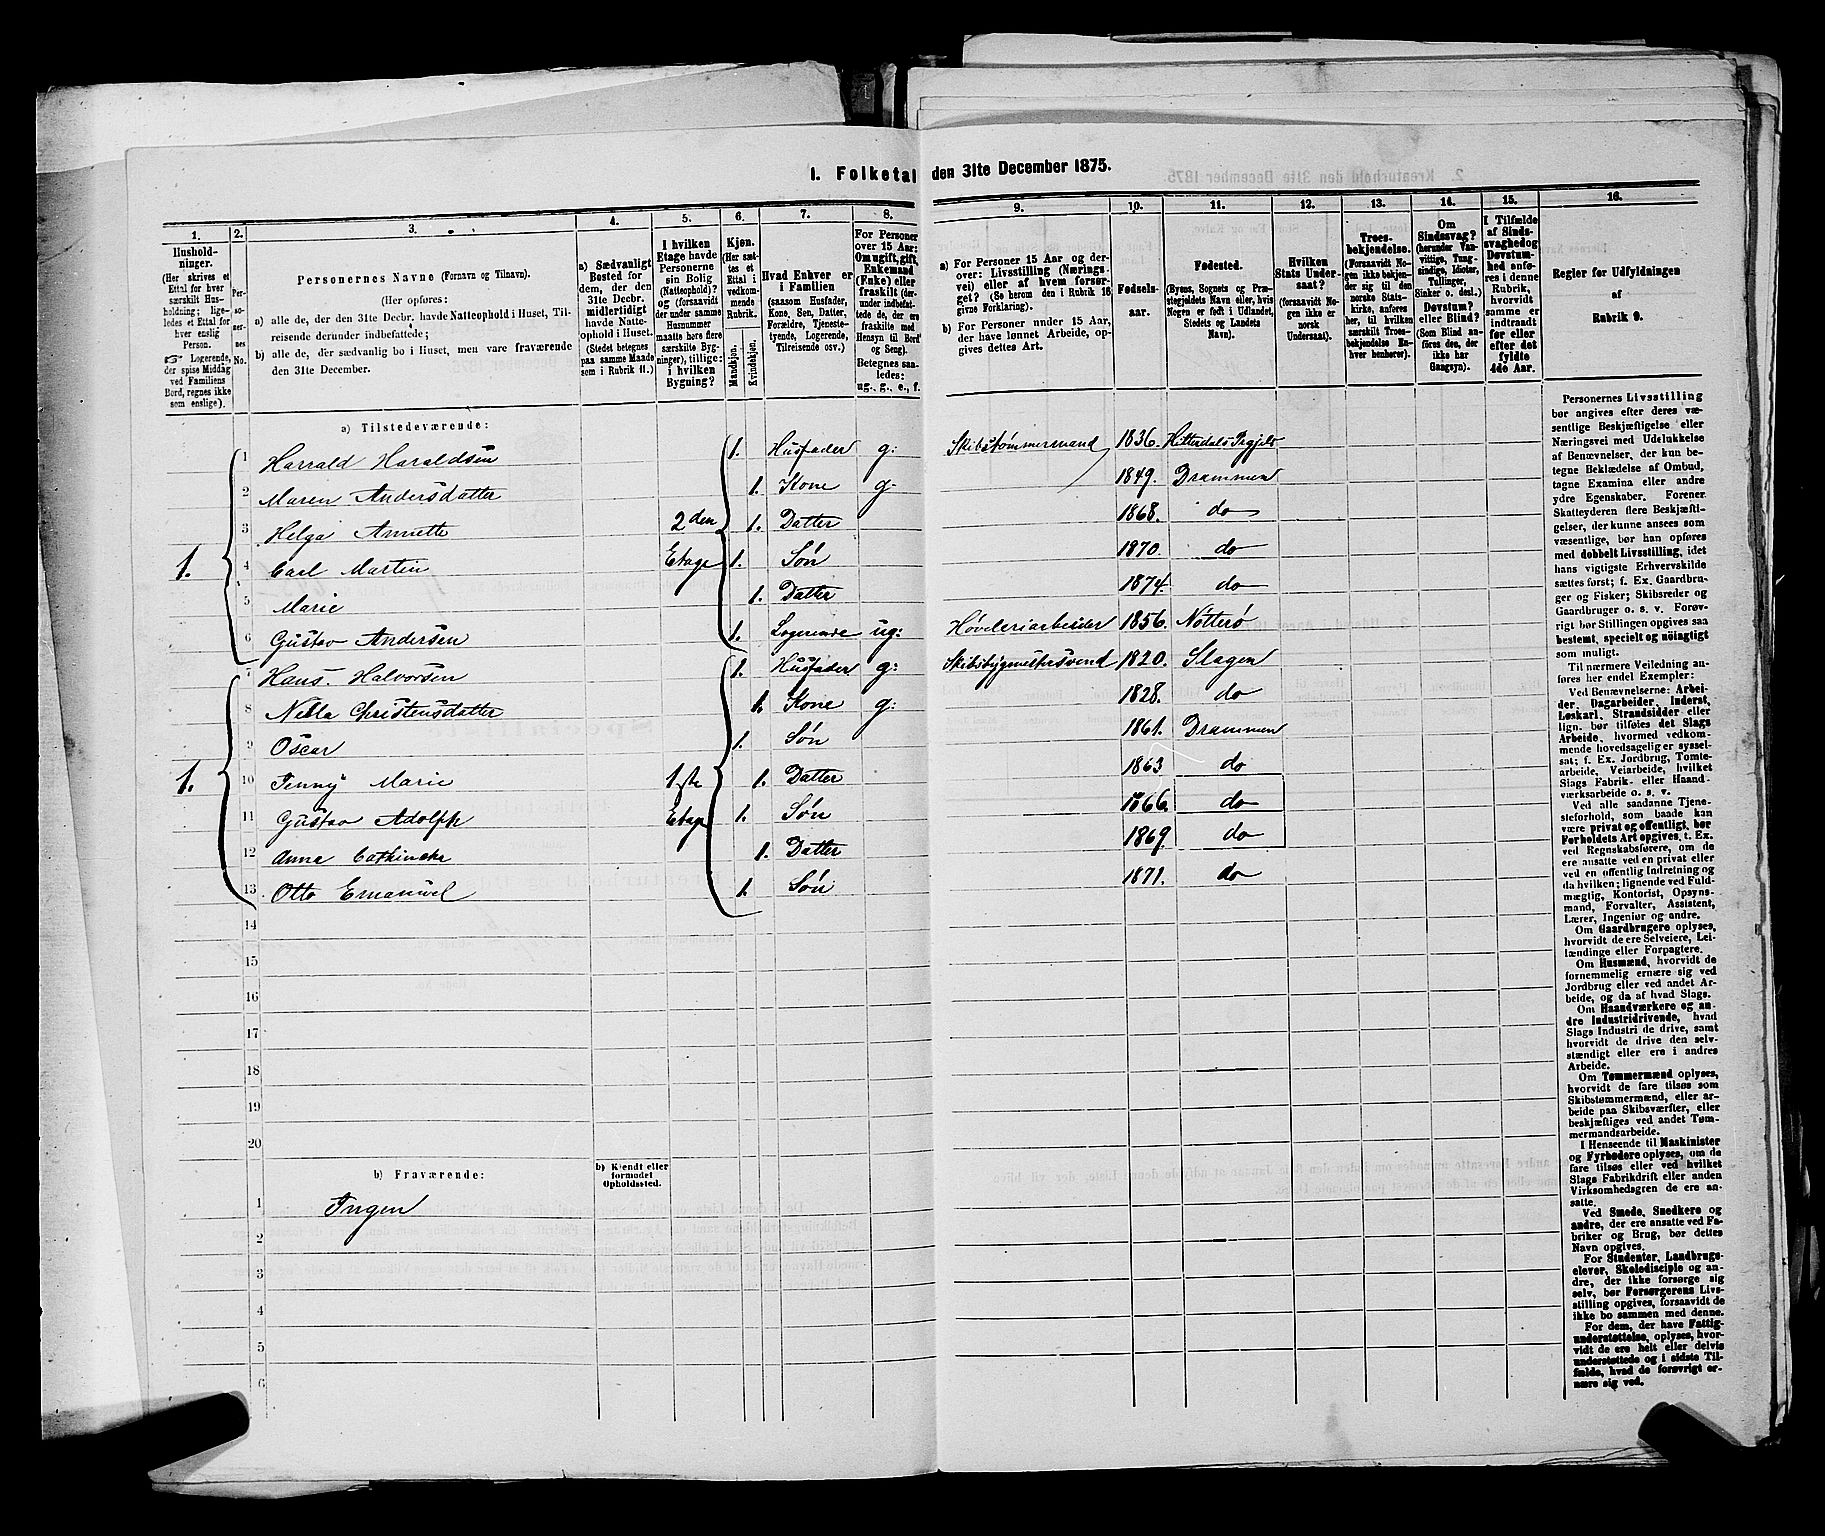 1. Folketal den 31te December 1875.
1. 2. 3. 4. 5. 6. 7. 8. 9. 10. 11. 12. 13. 14. 15. 16.
Hushold-
ninger.
(Her skrives et
Ettal for hver
særskilt Hus-
holdning; lige-
ledes et Ettal for
hver enslig
Person.
☞ Logerende,
der spise Middag
ved Familiens
Bord, regnes ikke
som enslige).
Per-
so-
ner-
nes
No.
Personernes Navne (Fornavn og Tilnavn).
(Her opføres:
a) alle de, der den 31te Decbr. havde Natteophold i Huset, Til-
reisende derunder indbefattede;
b) alle de, der sædvanlig bo i Huset, men vare fraværende
den 31te December.
a) Sædvanligt
Bosted for
dem, der den
31te Decbr.
midlertidigt
havde Natte-
ophold i Huset.
(Stedet betegnes
paa samme Maade
som i Rubrik 11.)
I hvilken
Etage havde
Personerne
sin Bolig
(Natteophold)?
og (forsaavidt
der under samme
Husnummer
maatte høre flere
særskilte Byg-
ninger), tillige:
i hvilken
Bygning?
Kjøn.
(Her sæt-
tes et
Ettal i
vedkom-
mende
Rubrik.
Mandkjøn.
Kvindekjøn.
Hvad Enhver er
i Familien
(saasom Husfader,
Kone, Søn, Datter,
Forældre, Tjeneste-
tyende, Logerende,
Tilreisende osv.)
For Personer
over 15 Aar:
Om ugift, gift,
Enkemand
(Enke) eller
fraskilt (der-
under indbefat-
tede de, der ere
fraskilte med
Hensyn til Bord
og Seng).
Betegnes saa-
ledes:
ug., g., e., f.
a) For Personer 15 Aar og der-
over: Livsstilling (Nærings-
vei) eller af hvem forsør-
get? (Se herom den i Rubrik 16
givne Forklaring).
b) For Personer under 15 Aar,
der have lønnet Arbeide, op-
gives dettes Art.
Fødsels-
aar.
Fødested.
(Byens, Sognets og Præ-
stegjeldets Navn eller, hvis
Nogen er født i Udlandet,
Stedets og Landets
Navn).
Hvilken
Stats Under-
saat?
(forsaavidt No-
gen ikke er
norsk
Undersaat).
Troes-
bekjendelse.
(Forsaavidt No-
gen ikke bekjen-
der sig til den
norske Stats-
kirke, anføres
her, til hvilket
særskilt Troes-
bekjendelse En-
hver henhører).
Om
Sindssvag?
(herunder Van-
vittige, Tung-
sindige, Idioter,
Tullinger,
Sinker o. desl.)
Døvstum?
eller Blind?
(Som Blind an-
føres de, der
ikke har
Gangsyn).
I Tilfælde
af Sinds-
svaghed og
Døvstum-
hed anfø-
res i denne
Rubrik,
hvorvidt
samme er
indtraadt
før eller
efter det
fyldte
4de Aar.
Regler for Udfyldningen
af
Rubrik 9.
a) Tilstedeværende:
1 Harrald Haraldsen 1. Husfader g: Skibstømmermand 1836. Hitterdals Prgjeld
2 Maren Andersdatter 1. Kone g. 1849. Drammen
3 Helga Annette 2den 1. Datter 1868. do
1. 4 Carl Martin Etage 1. Søn 1870. do
5 Marie 1. Datter 1874. do
6 Gustav Andersen 1. Logerende ug: Høvleriarbeider 1856. Nøtterø
7 Hans. Halvorsen 1. Husfader g: Skibsbygmestersvend 1820. Slagen
8 Nella Christensdatter 1. Kone g: 1828. do
9 Oscar 1. Søn 1861. Drammen
1. 10 Jenny Marie 1ste 1. Datter 1863 do
11 Gustav Adolph Etage 1. Søn 1866. do
12 Anna Cathincka 1. Datter 1869. do
13 Otto Emanuel 1. Søn 1871. do
14
15
16
17
18
19
20
b) Fraværende:
b) Kjendt eller
formodet
Opholdssted.
1 Ingen
2
3
4
5
6
Personernes Livsstilling
bør angives efter deres væ-
sentlige Beskjæftigelse eller
Næringsvei med Udelukkelse
af Benævnelser, der kun be-
tegne Beklædelse af Ombud,
tagne Examina eller andre
ydre Egenskaber. Forener
Skatteyderen flere Beskjæfti-
gelser, der kunne ansees som
væsentlige, bør han opføres
med dobbelt Livsstilling, idet
hans vigtigste Erhvervskilde
sættes først; f. Ex. Gaardbru-
ger og Fisker; Skibsreder og
Gaardbruger o. s. v. Forøv-
rigt bør Stillingen opgives saa
bestemt, specielt og nøiagtigt
som muligt.
Til nærmere Veiledning an-
føres her endel Exempler:
Ved Benævnelserne: Arbei-
der, Dagarbeider, Inderst,
Løskarl, Strandsidder eller
lign. bør tilføies det Slags
Arbeide, hvormed vedkom-
mende hovedsagelig er syssel-
sat; f. Ex. Jordbrug, Tomte-
arbeide, Veiarbeide, hvilket
Slags Fabrik- eller Haand-
værksarbeide o. s. v.
Ved alle saadanne Tjene-
steforhold, som baade kan
være privat og offentligt, bør
Forholdets Art opgives, t. Ex.
ved Regnskabsførere, om de
ere ansatte ved en privat eller
ved en offentlig Indretning og
da hvilken; lignende ved Fuld-
mægtig, Kontorist, Opsyns-
mand, Forvalter, Assistent,
Lærer, Ingeniør og andre.
Om Gaardbrugere oplyses,
hvorvidt de ere Selveiere, Lei-
lændinge eller Forpagtere.
Om Husmænd, hvorvidt de
fornemmelig ernære sig ved
Jordbrug eller ved andet Ar-
beide, og da af hvad Slags.
Om Haandværkere og an-
dre Industridrivende, hvad
Slags Industri de drive, samt
hvorvidt de drive den selv-
stændigt eller ere i andres
Arbeide.
Om Tømmermænd oplyses,
hvorvidt de fare tilsøs som
Skibstømmermænd, eller ar-
beide paa Skibsværfter, eller
beskjæftiges ved andet Tøm-
mermandsarbeide.
I Henseende til Maskinister
og Fyrbødere oplyses, om de
fare tilsøs eller ved hvilket
Slags Fabrikdrift eller anden
Virksomhedsgren de ere an-
satte.
Ved Smede, Snedkere og
andre, der ere ansatte ved Fa-
briker og Brug, bør dettes
Navn opgives.
For Studenter, Landbrugs-
elever, Skoledisciple og an-
dre, der ikke forsørge sig
selv, bør Forsørgerens Livs-
stilling opgives, forsaavidt de
ikke bo sammen med denne.
For dem, der have Fattig-
understøttelse, oplyses, hvor-
vidt de ere helt eller delvis
understøttede og i sidste Til-
fælde, hvad de forøvrigt er-
nære sig ved.